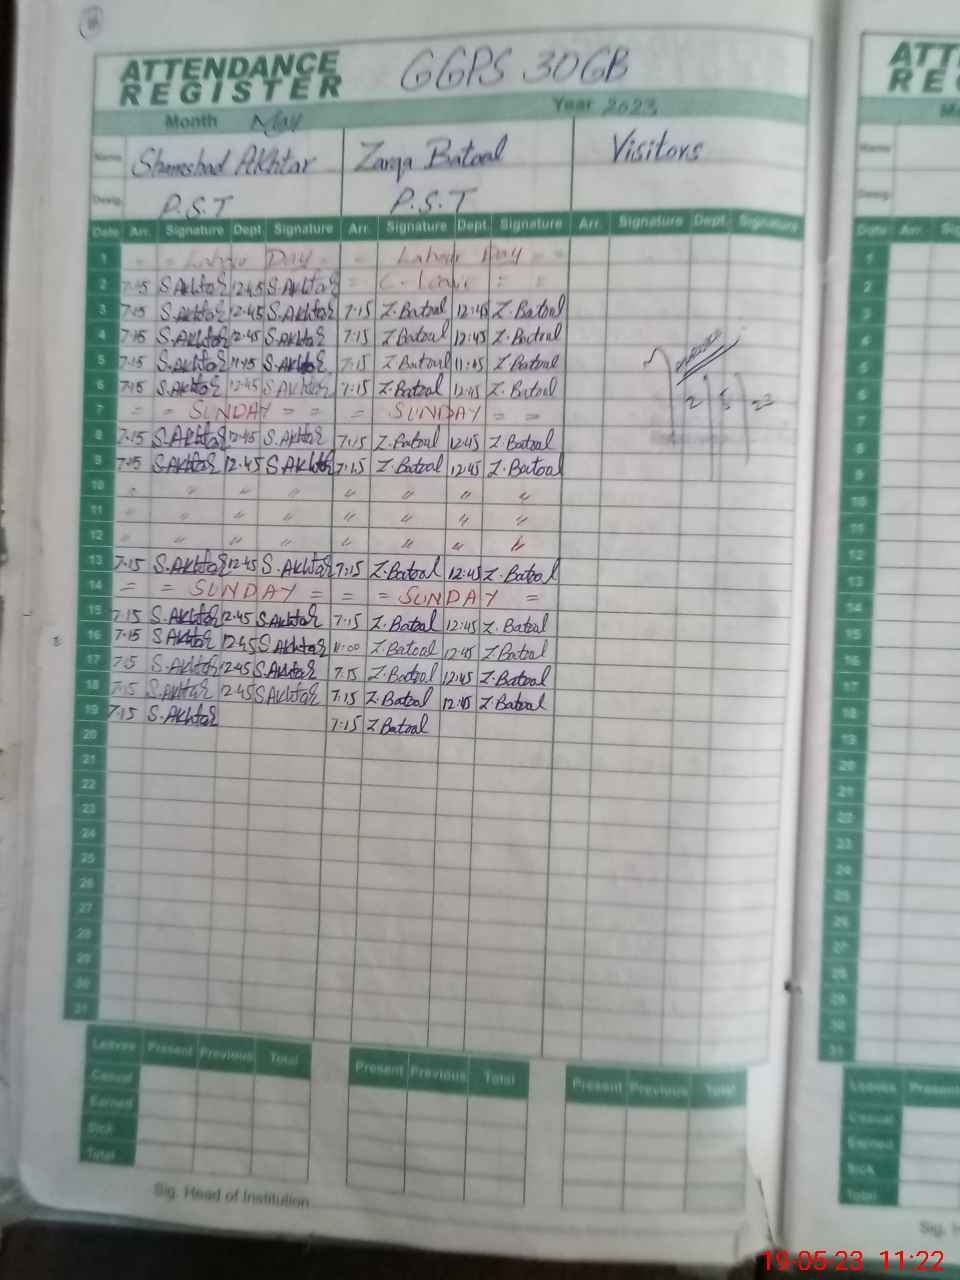 ATTENDANCE REGISTER GGPS 30GB
Month May Year 2023
Name Shamshad Akhtar Zarqa Batool Visitors
Desig. P.S.T P.S.T
Date Arr. Signature Dept Signature Arr. Signature Dept. Signature Arr. Signature Dept. Signature
1 = = Labour Day = = Labour Day = =
2 7:15 S.Akhtar 12:45 S.Akhtar = = =
3 7:15 S.Akhtar 12:45 S.Akhtar 7:15 Z.Batool 12:45 Z.Batool
4 7:15 S.Akhtar 12:45 S.Akhtar 7:15 Z.Batool 12:45 Z.Batool
5 7:15 S.Akhtar 11:45 S.Akhtar 7:15 Z.Batool 11:45 Z.Batool
6 7:15 S.Akhtar 12:45 S.Akhtar 7:15 Z.Batool 12:45 Z.Batool
7 = = SUNDAY = = = SUNDAY = =
8 7:15 S.Akhtar 12:45 S.Akhtar 7:15 Z.Batool 12:45 Z.Batool
9 7:15 S.Akhtar 12:45 S.Akhtar 7:15 Z.Batool 12:45 Z.Batool
10 " " " " " " " "
11 " " " " " " " "
12 " " " " " " " "
13 7:15 S.Akhtar 12:45 S.Akhtar 7:15 Z.Batool 12:45 Z.Batool
14 = = SUNDAY = = = SUNDAY =
15 7:15 S.Akhtar 12:45 S.Akhtar 7:15 Z.Batool 12:45 Z.Batool
16 7:15 S.Akhtar 12:45 S.Akhtar 11:00 Z.Batool 12:45 Z.Batool
17 7:15 S.Akhtar 12:45 S.Akhtar 7:15 Z.Batool 12:45 Z.Batool
18 7:15 S.Akhtar 12:45 S.Akhtar 7:15 Z.Batool 12:45 Z.Batool
19 7:15 S.Akhtar 7:15 Z.Batool
20
21
22
23
24
25
26
27
28
29
30
31
2 5 23
Leaves Present Previous Total Present Previous Total Present Previous Total
Casual
Earned
Sick
Total
Sig. Head of Institution
ATT
RE
Name
Desig.
Date Arr. Sig
1
2
3
4
5
6
7
8
9
10
11
12
13
14
15
16
17
18
19
20
21
22
23
24
25
26
27
28
29
30
31
Leaves Present
Casual
Earned
Sick
Total
19-05-23 11:22